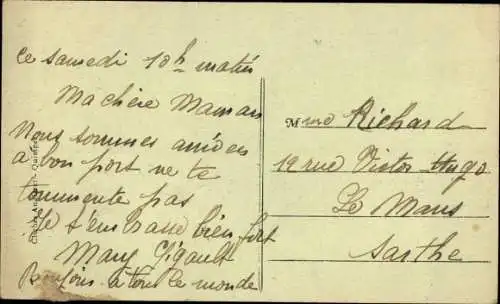 Ce samedi 10h matin
Ma chère Maman
Nous sommes arrivées
à bon port ne te
tourmente pas
Je t'embrasse bien fort
Mary Gigault
Bonjour à tout le monde
Mme Richard
19 rue Victor-Hugo
Le Mans
Sarthe